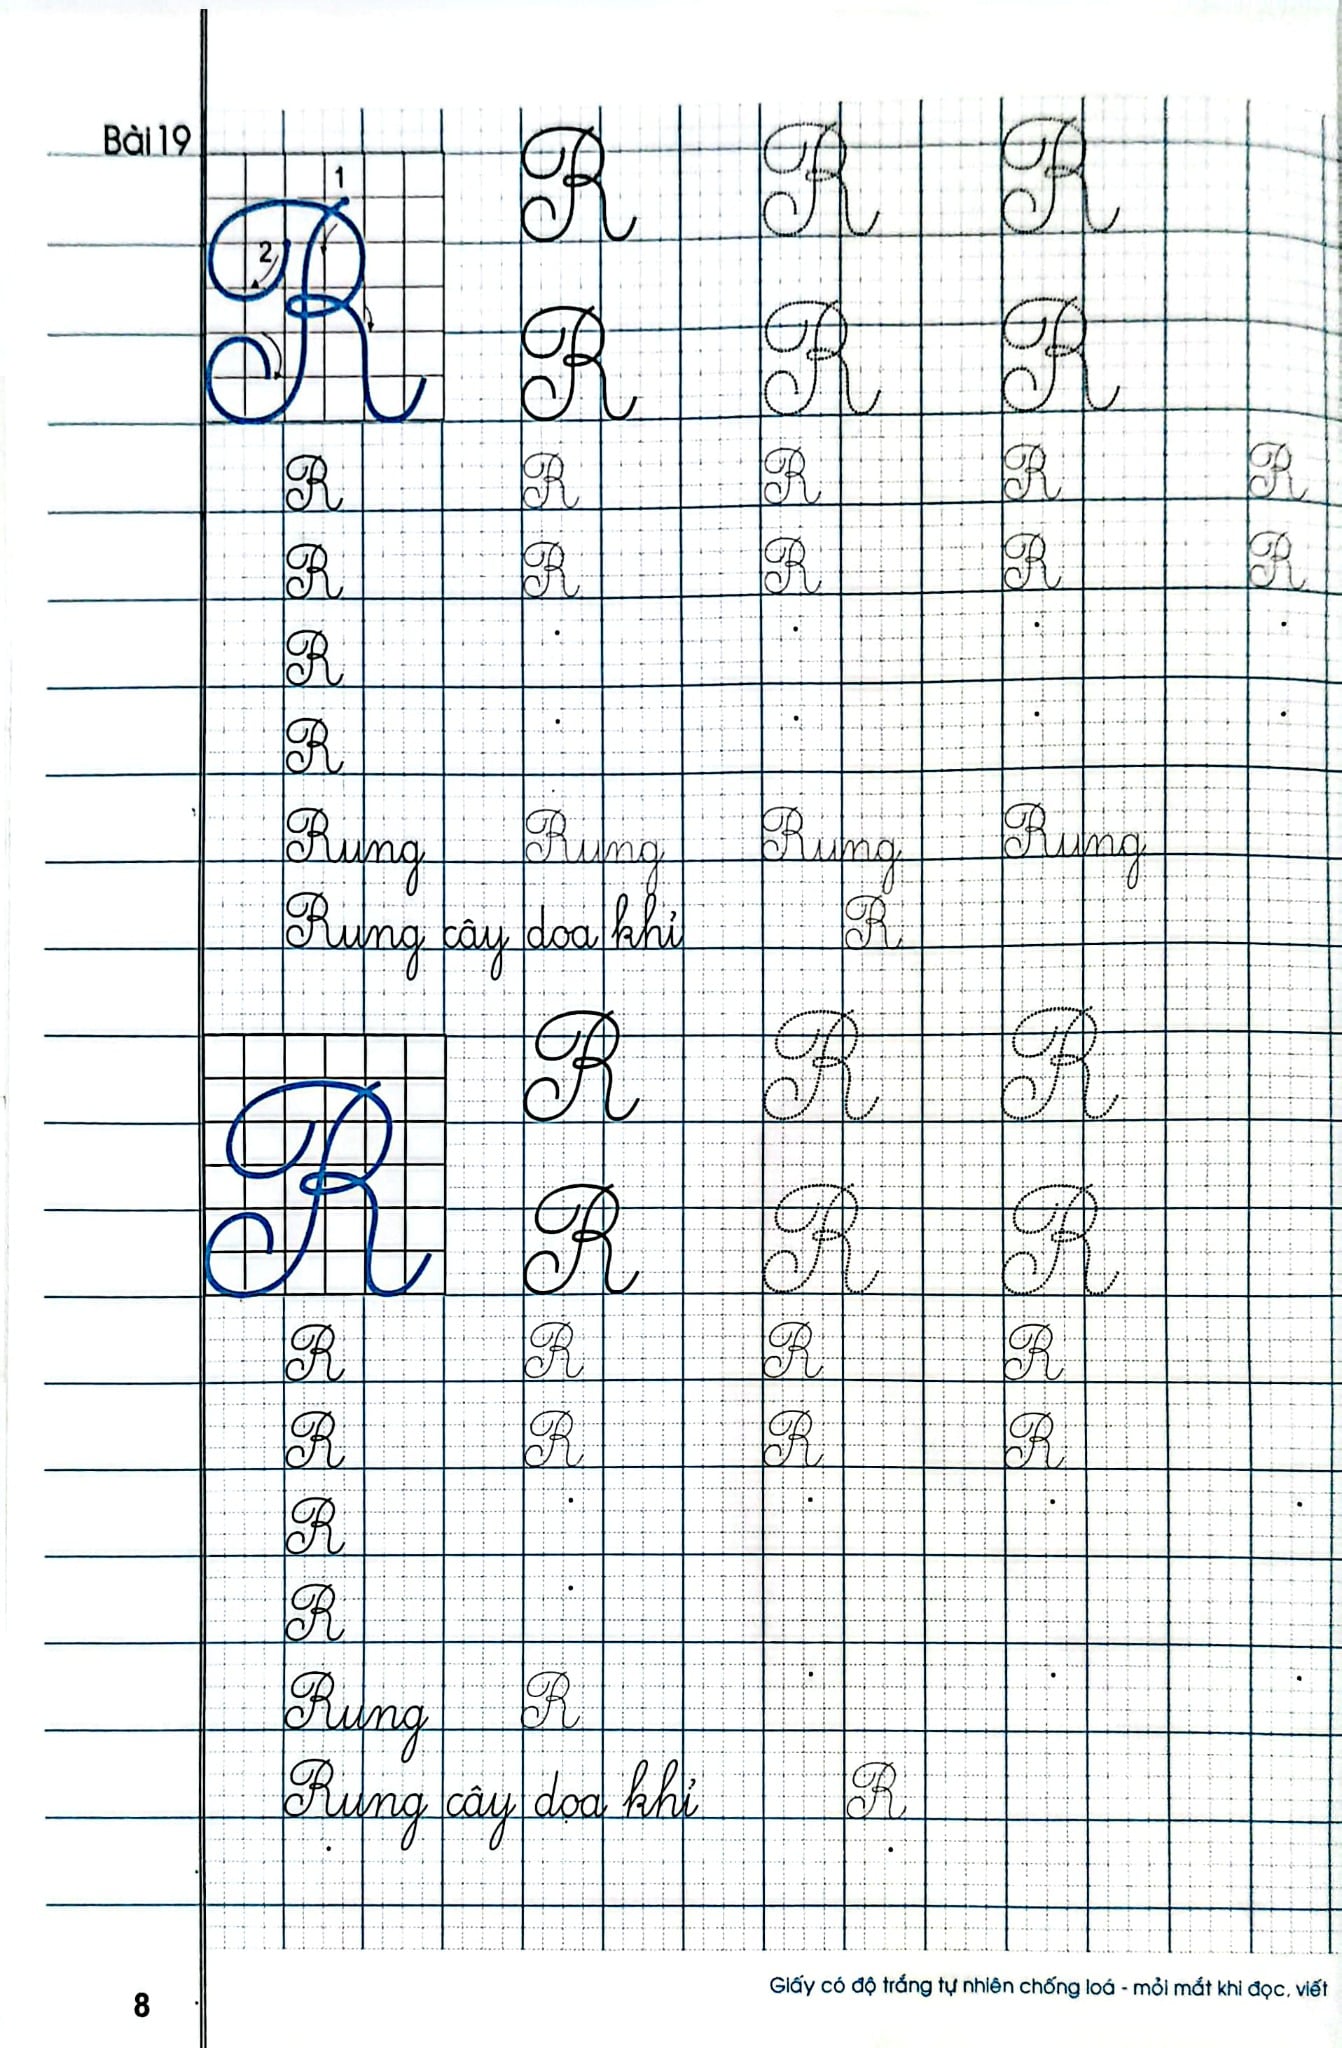 Bài 19
1
2
R R R
R R R
R R R R R
R R R R R
R
R
Rung Rung Rung Rung
Rung cây doa khỉ R
R R R
R R R
R R R R R
R R R R
R R R R
R
R
Rung R
Rung cây dọa khỉ R
8
Giấy có độ trắng tự nhiên chống loá - mỏi mắt khi đọc, viết